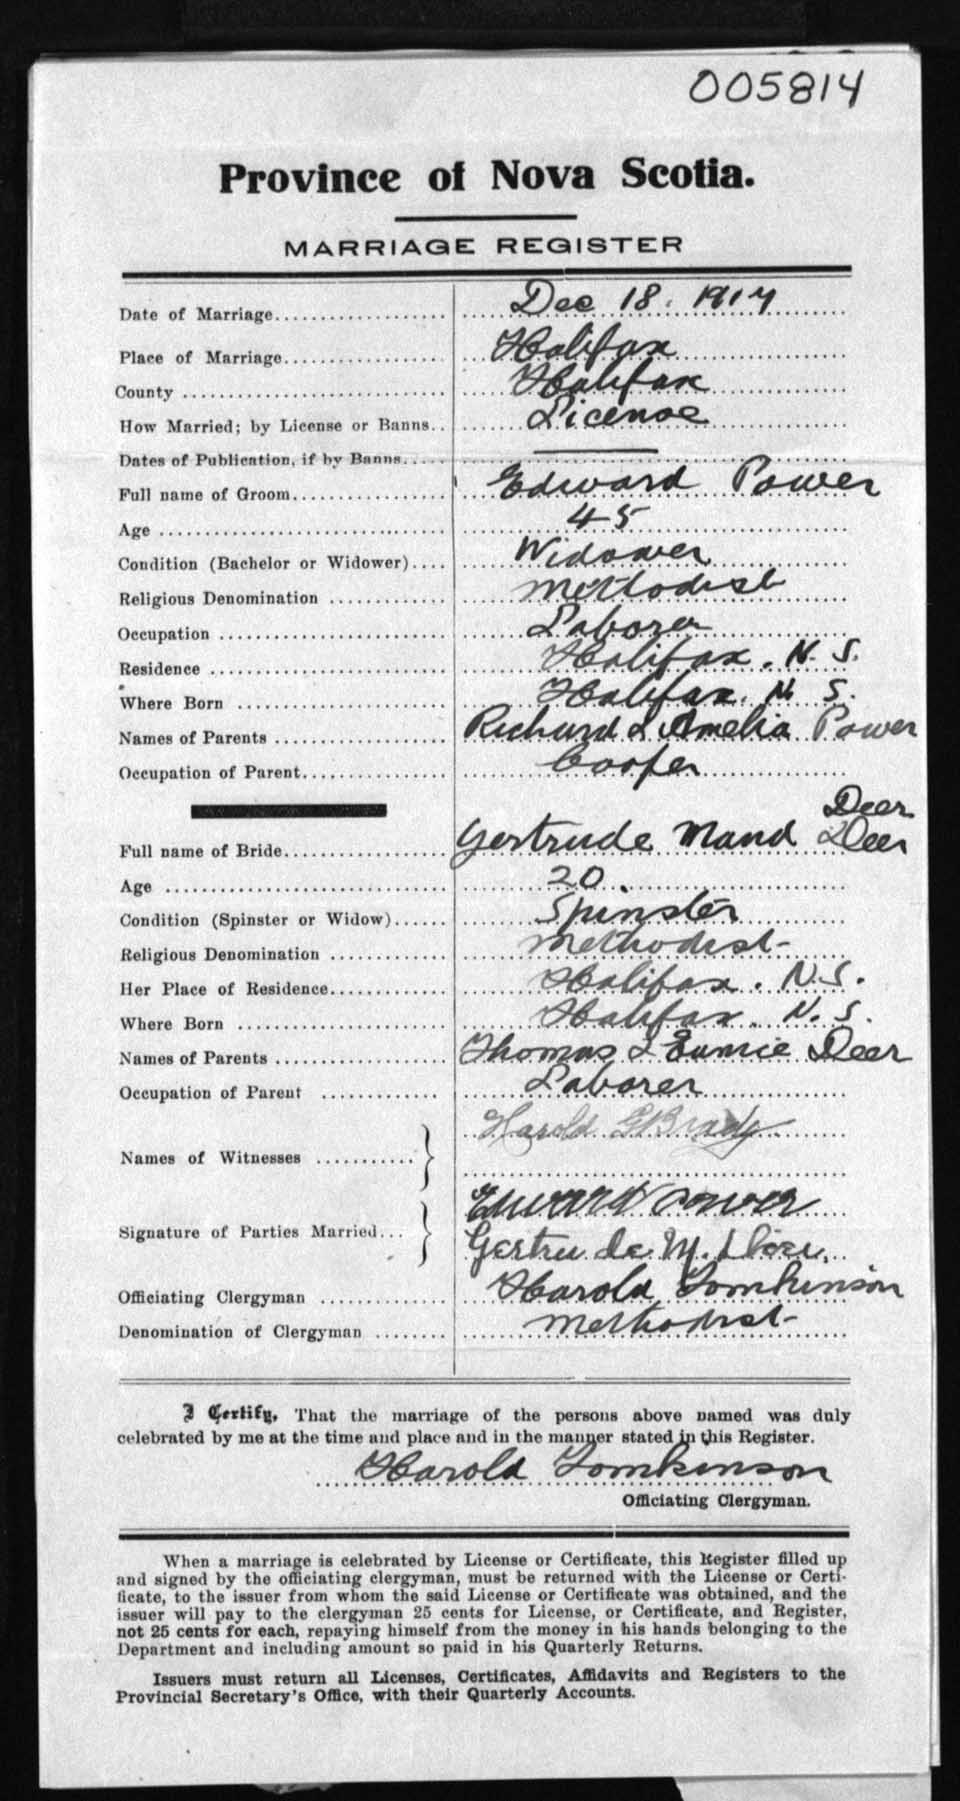 005814
Province of Nova Scotia.
MARRIAGE REGISTER
Date of Marriage Dec 18. 1917
Place of Marriage Halifax
County Halifax
How Married; by License or Banns License
Dates of Publication, if by Banns
Full name of Groom Edward Power
Age 45
Condition (Bachelor or Widower) Widower
Religious Denomination Methodist
Occupation Laborer
Residence Halifax. N. S.
Where Born Halifax. N. S.
Names of Parents Richard & Amelia Power
Occupation of Parent Cooper
Deer
Full name of Bride Gertrude Maud Deer
Age 20.
Condition (Spinster or Widow) Spinster
Religious Denomination Methodist
Her Place of Residence Halifax. N.S.
Where Born Halifax. N. S.
Names of Parents Thomas & Eunice Deer
Occupation of Parent Laborer
Harold G Brady
Names of Witnesses
Edward Power
Signature of Parties Married
Gertrude M.
Officiating Clergyman Harold Tomkinson
Denomination of Clergyman Methodist
I Certify, That the marriage of the persons above named was duly
celebrated by me at the time and place and in the manner stated in this Register.
Harold Tomkinson
Officiating Clergyman.
When a marriage is celebrated by License or Certificate, this Register filled up
and signed by the officiating clergyman, must be returned with the License or Certi-
ficate, to the issuer from whom the said License or Certificate was obtained, and the
issuer will pay to the clergyman 25 cents for License, or Certificate, and Register,
not 25 cents for each, repaying himself from the money in his hands belonging to the
Department and including amount so paid in his Quarterly Returns.
Issuers must return all Licenses, Certificates, Affidavits and Registers to the
Provincial Secretary's Office, with their Quarterly Accounts.